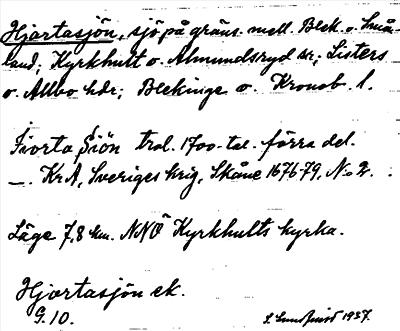 Hjortasjön, sjö på gräns mell. Blek. o. Små-
land; Kyrkhult o. Almundsryd snr; Listers
o. Allbo hdr; Blekinge o. Kronob. l.
Fiorta Siön trol. 1700-tal. förra del.
—. KrA, Sveriges krig, Skåne 1676-79, No 2.
Läge 7,8 km. NNÖ Kyrkhults kyrka.
Hjortasjön ek.
G. 10.
1937.